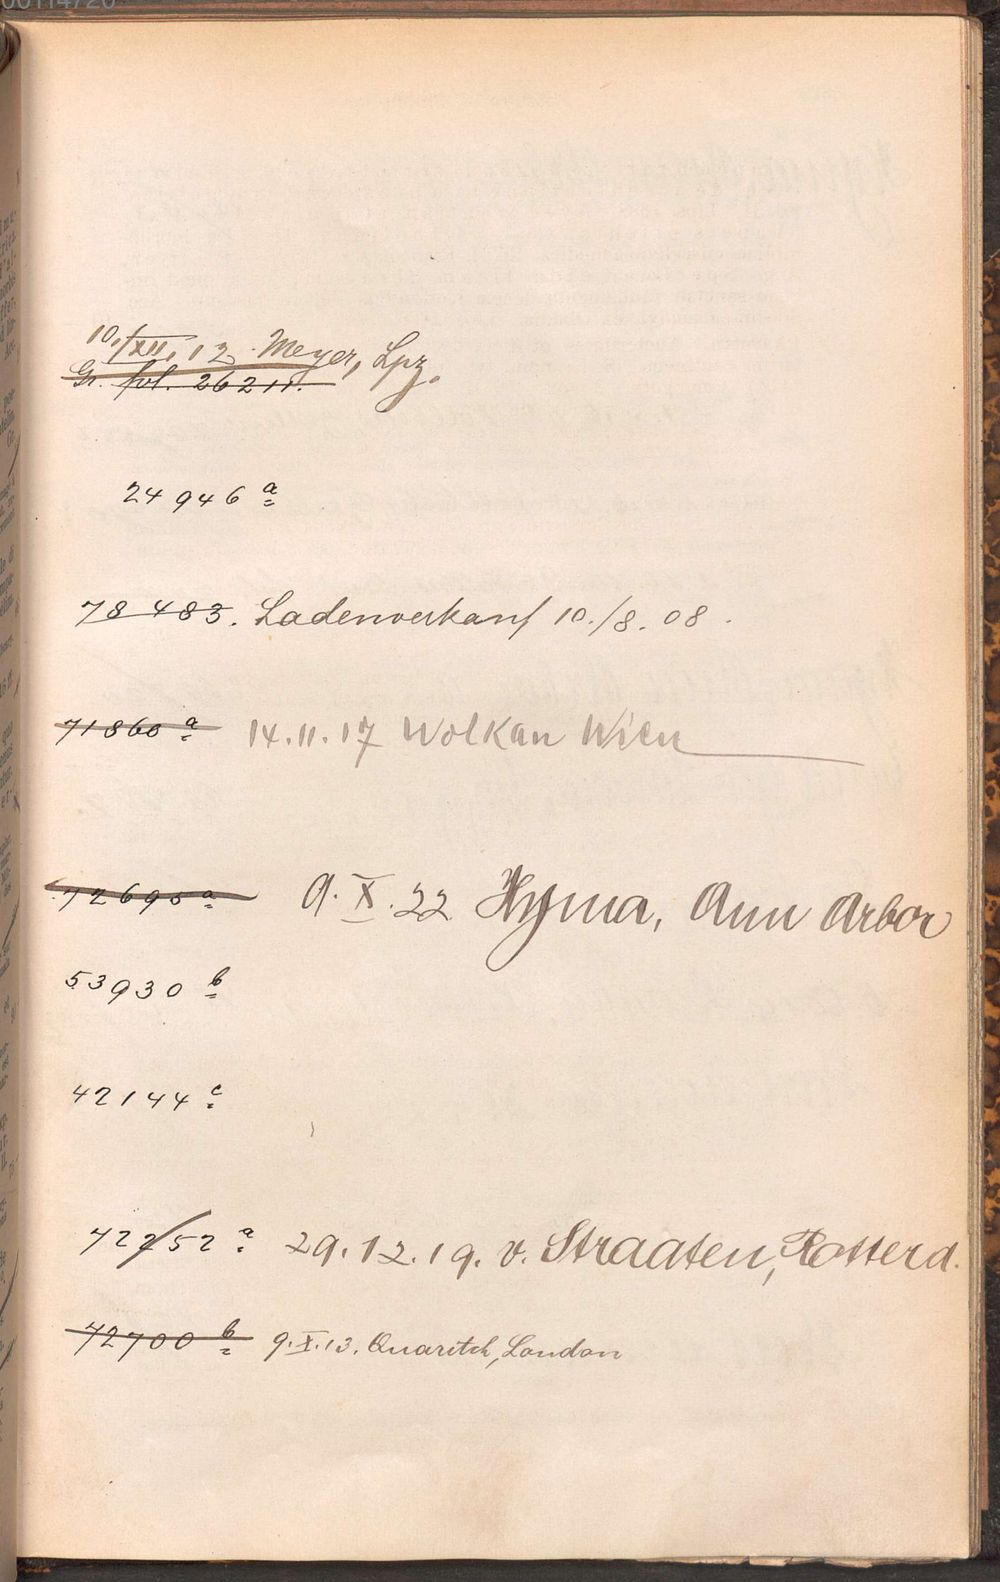 10./XII. 12. Meyer, Lpz.
Gr. fol. 26211.
24946 a
78483. Ladenverkauf 10./8. 08.
71860 a 14.11.17 Wolkan Wien
72695 a 9. X. 22 Hyma, Ann Arbor
53930 b
42144 c
72252 a 29.12.19. v. Straaten, Rotterd.
72700 b 9.X.13. Quaritch, London